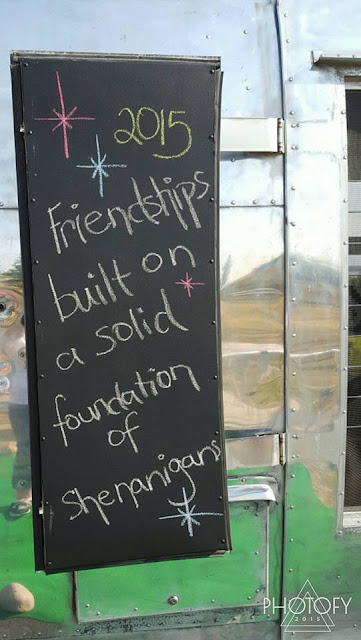 2015
Friendships
built on
a solid
foundation
of
Shenanigans
PHOTOFY
2015